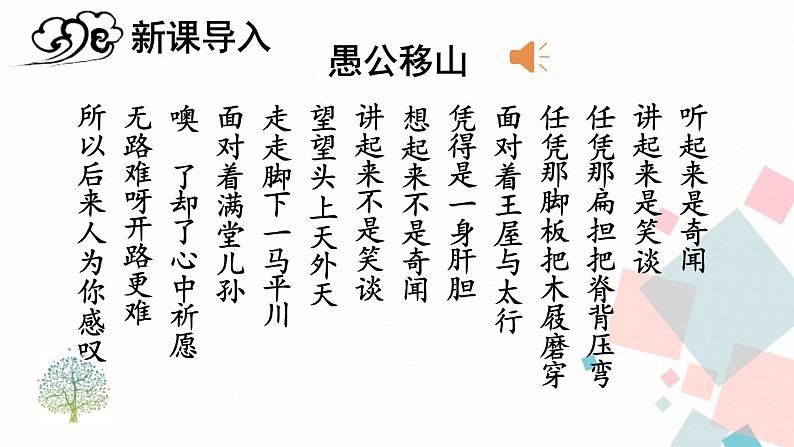 新课导入
愚公移山
听起来是奇闻
讲起来是笑谈
任凭那扁担把脊背压弯
任凭那脚板把木屐磨穿
面对着王屋与太行
凭得是一身肝胆
想起来不是奇闻
讲起来不是笑谈
望望头上天外天
走走脚下一马平川
面对着满堂儿孙
噢 了却了心中祈愿
无路难呀开路更难
所以后来人为你感叹